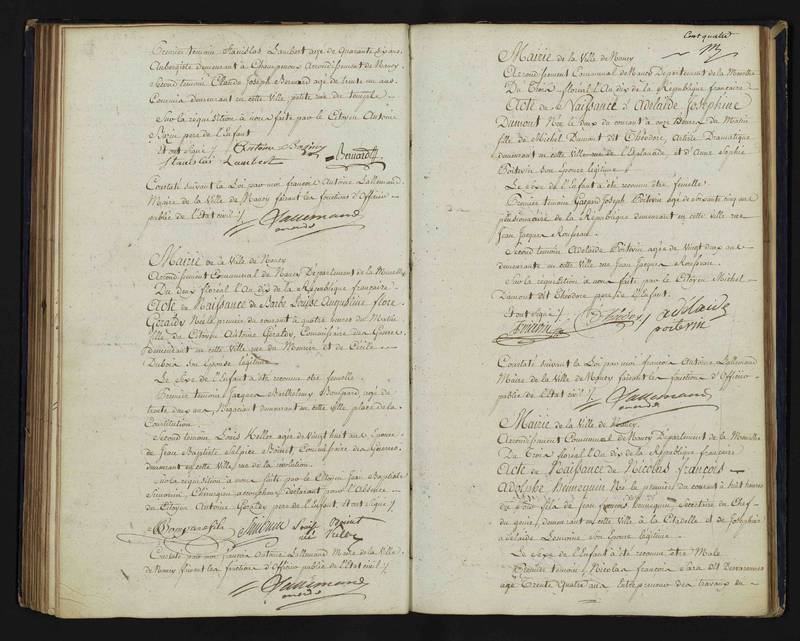 Premier temoin Stanislas Lambert agé de Quarante six ans
Aubergiste demeurant à Champenoux Arrondissement de Nancy
Second temoin Claude Joseph Bernard agé de trente un ans
Commis demeurant en cette Ville petite rue du temple
Sur la réquisition à nous faite par le Citoyen Antoine
pere de l'Enfant
Et ont signé
Stanislas Lambert
Bernard
Constaté suivant la Loi par moi françois Antoine Lallemand
Maire de la Ville de Nancy faisant les fonctions d'Officier
public de l'Etat civil
Lallemand
Mairie de la Ville de Nancy
Arrondissement Communal de Nancy Département de la Meurthe
Du deux floréal l'An dix de la République francaise
Acte de Naissance de Barbe Louise Augustine flore
Géraldy Née le premier du courant à quatre heures du Matin
fille du Citoyen Antoine Géraldy, Commissaire des Guerres
demeurant en cette Ville rue du et de Cécile
Dubois son Epouse légitime
Le Sexe de l'Enfant a été reconnu etre femelle
Premier témoin Jacques Barthelemy agé de
trente deux ans, demeurant en cette ville place de la
Constitution
Second témoin Louise Keller agée de Vingt huit ans Epouse
de Jean Baptiste Sulpice Commissaire des Guerres
demeurant en cette Ville, rue de la révolution
Sur la réquisition à nous faite par le Citoyen Jean Baptiste
Simonin, Chirurgien accoucheur, déclarant pour l'Absence
du Citoyen Antoine Géraldy pere de l'Enfant. Et ont Signé
Simonin
née Keller
Constaté par moi françois Antoine Lallemand Maire de la Ville
de Nancy faisant les fonctions d'Officier public de l'Etat civil
Lallemand
Cent quatre
Mairie de la Ville de Nancy
Arrondissement Communal de Nancy Département de la Meurthe
Du Trois floréal l'An dix de la République francaise
Acte de Naissance d'Adelaïde Joséphine
Dumont Née le deux du courant à onze heures du Matin
fille de Michel Dumont dit Théodore, Artiste Dramatique
demeurant en cette Ville rue de l'Esplanade, et d'Anne Sophie
Poitevin son Epouse légitime
Le Sexe de l'Enfant a été reconnu être femelle
Premier temoin Gaspard Joseph Poitevin agé de soixante cinq ans
pensionnaire de la République demeurant en cette ville rue
Jean Jacques Rousseau
Second temoin Adelaïde Poitevin agée de Vingt deux ans
demeurante en cette ville rue Jean Jacques Rousseau
Sur la réquisition à nous faite par le Citoyen Michel
Dumont dit Théodore pere de l'Enfant
Et ont signé
Théodore
adelaide
poitevin
Constaté suivant la Loi par moi françois Antoine Lallemand
Maire de la Ville de Nancy faisant les fonctions d'Officier
public de l'Etat civil
Lallemand
Mairie de la Ville de Nancy
Arrondissement Communal de Nancy Département de la Meurthe
Du Trois floréal l'An dix de la République francaise
Acte de Naissance de Nicolas françois
Adolphe Hennequin Né le premier du courant à huit heures
du Soir fils de Jean françois hennequin, Secrétaire en Chef
du genie, demeurant en cette Ville à la Citadelle et de Josephine
Lemoine son Epouse légitime
Le Sexe de l'Enfant a été reconnu etre Male
Premier témoin Nicolas françois dit
agé Trente Quatre ans Entrepreneur des travaux